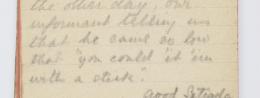 the other day, our
informant telling us
that he came so low
that "you could 'it 'im
with a stick".
Good